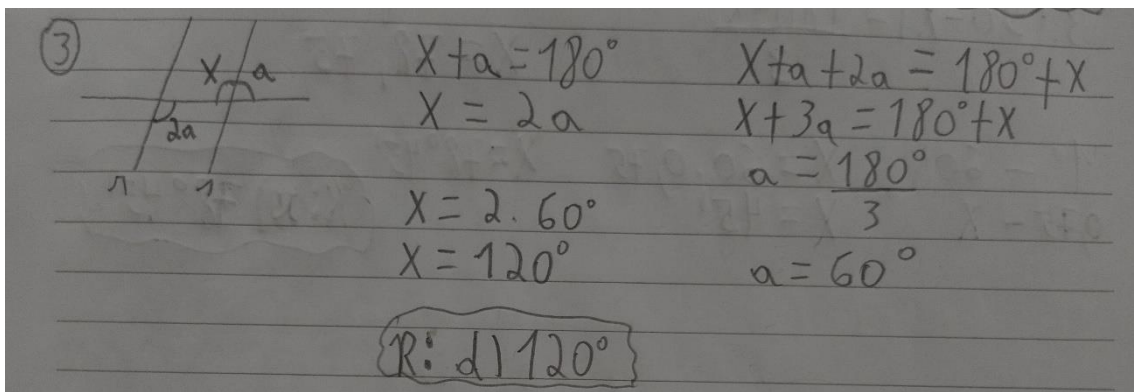 3
x a
2a
r s
x+a=180°
x = 2a
x = 2.60°
x = 120°
x+a+2a = 180°+x
x+3a = 180°+x
a = 180°
3
a = 60°
R: d) 120°